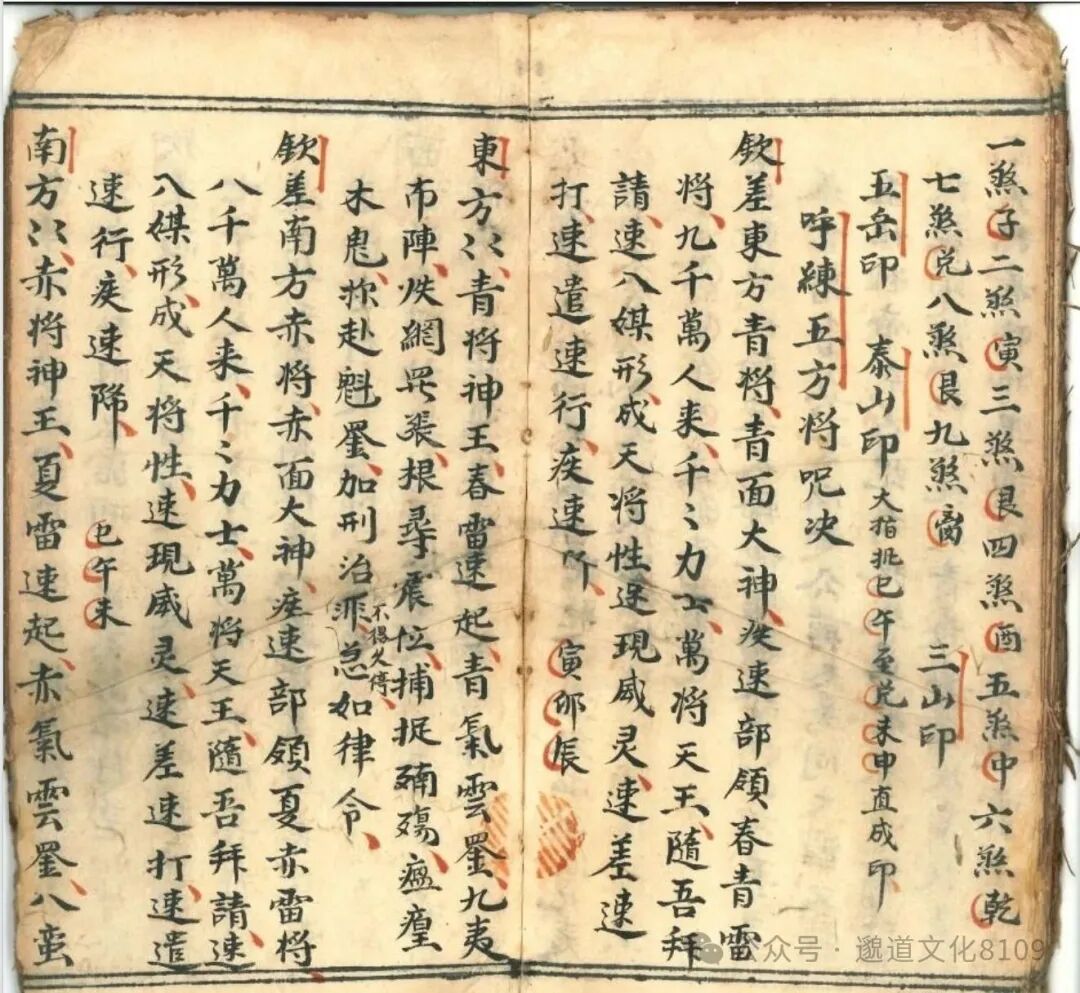 一煞子二煞寅三煞艮四煞酉五煞中六煞乾
七煞兌八煞艮九煞离 三山印
五岳印 泰山印大指抓巳午至兌未申直成印
呼練五方將咒决
欽差東方青將青面大神疾速部領春青雷
將九千萬人来千〻力士萬将天王隨吾拜
請速八媒形成天将性速現威灵速差速
打速遣速行疾速 寅卯辰
東方〻青将神王春雷速起青氣雲罡九夷
布陣 網 張根尋震位捕捉 殤瘟瘟
木鬼 赴魁罡加刑治 不得久停急如律令
欽差南方赤将赤面大神疾速部領夏赤雷将
八千萬人来千〻力士萬将天王隨吾拜請速
八媒形成天将性速現威灵速差速打速遣
速行疾速降 巳午未
南方〻赤将神王夏雷速起赤氣雲罡八蛮
公众号·邈道文化8109